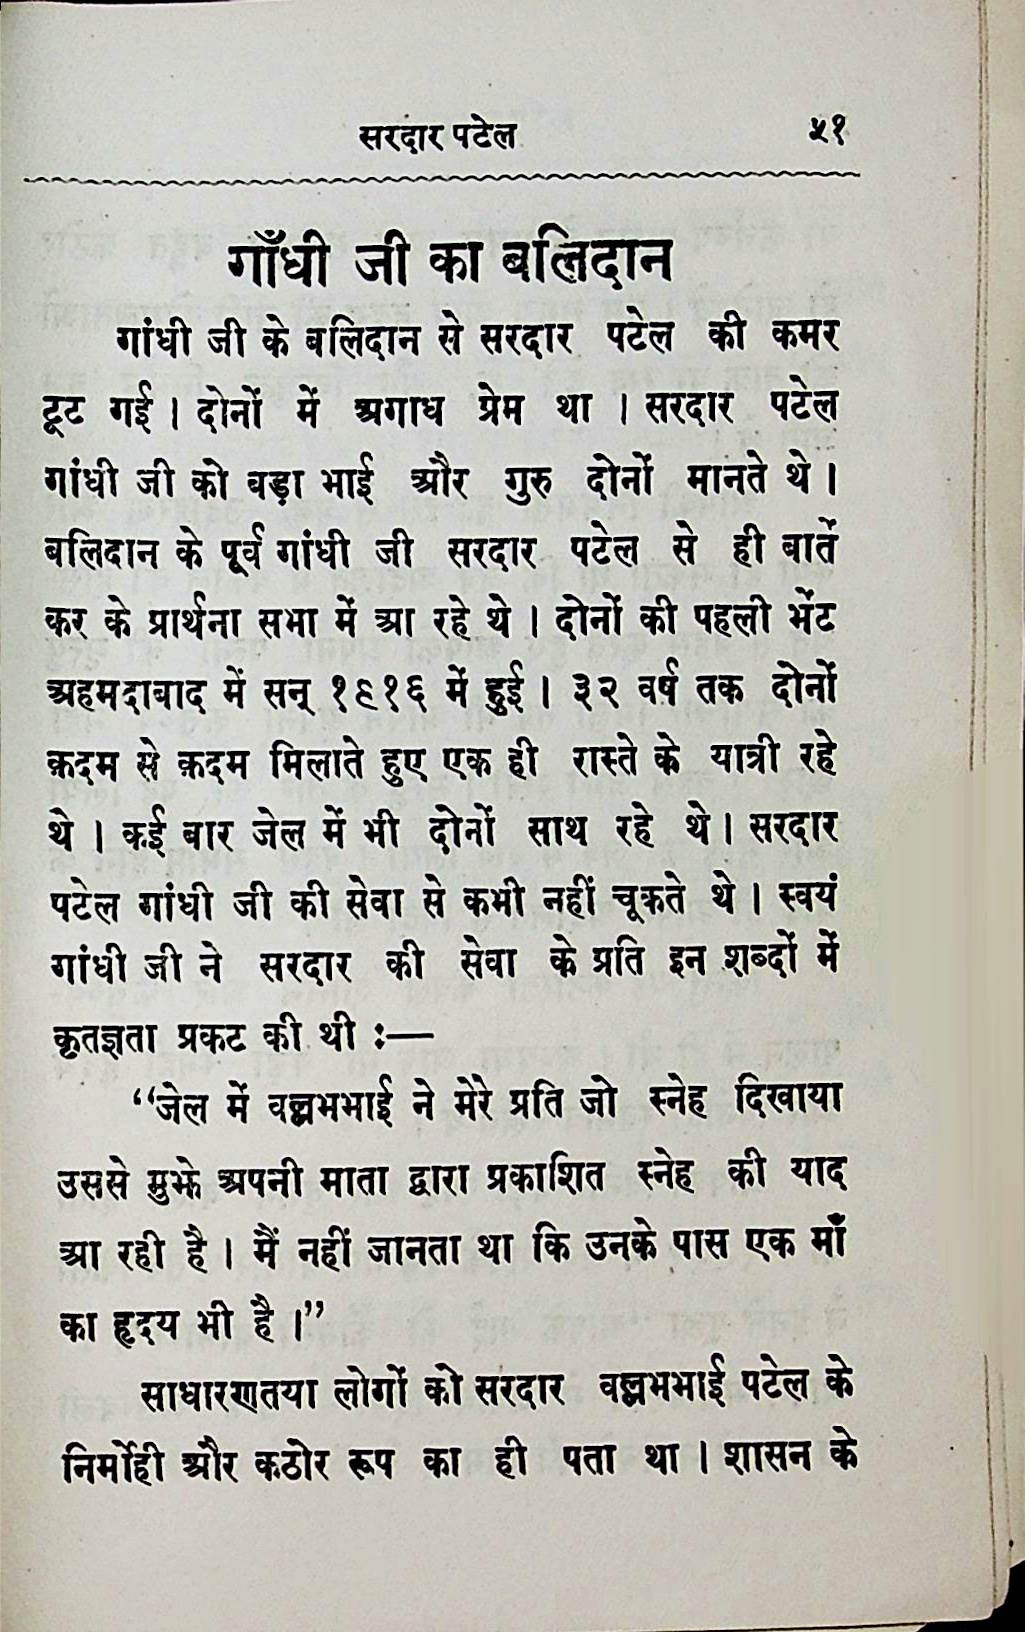 सरदार पटेल ५१
गाँधी जी का बलिदान
गांधी जी के बलिदान से सरदार पटेल की कमर
टूट गई । दोनों में अगाध प्रेम था । सरदार पटेल
गांधी जी को बड़ा भाई और गुरु दोनों मानते थे ।
बलिदान के पूर्व गांधी जी सरदार पटेल से ही बातें
कर के प्रार्थना सभा में आ रहे थे । दोनों की पहली भेंट
अहमदाबाद में सन् १९१६ में हुई । ३२ वर्ष तक दोनों
क़दम से क़दम मिलाते हुए एक ही रास्ते के यात्री रहे
थे । कई बार जेल में भी दोनों साथ रहे थे । सरदार
पटेल गांधी जी की सेवा से कभी नहीं चूकते थे । स्वयं
गांधी जी ने सरदार की सेवा के प्रति इन शब्दों में
कृतज्ञता प्रकट की थी :—
“जेल में वल्लभभाई ने मेरे प्रति जो स्नेह दिखाया
उससे मुझे अपनी माता द्वारा प्रकाशित स्नेह की याद
आ रही है । मैं नहीं जानता था कि उनके पास एक माँ
का हृदय भी है ।”
साधारणतया लोगों को सरदार वल्लभभाई पटेल के
निर्मोही और कठोर रूप का ही पता था । शासन के